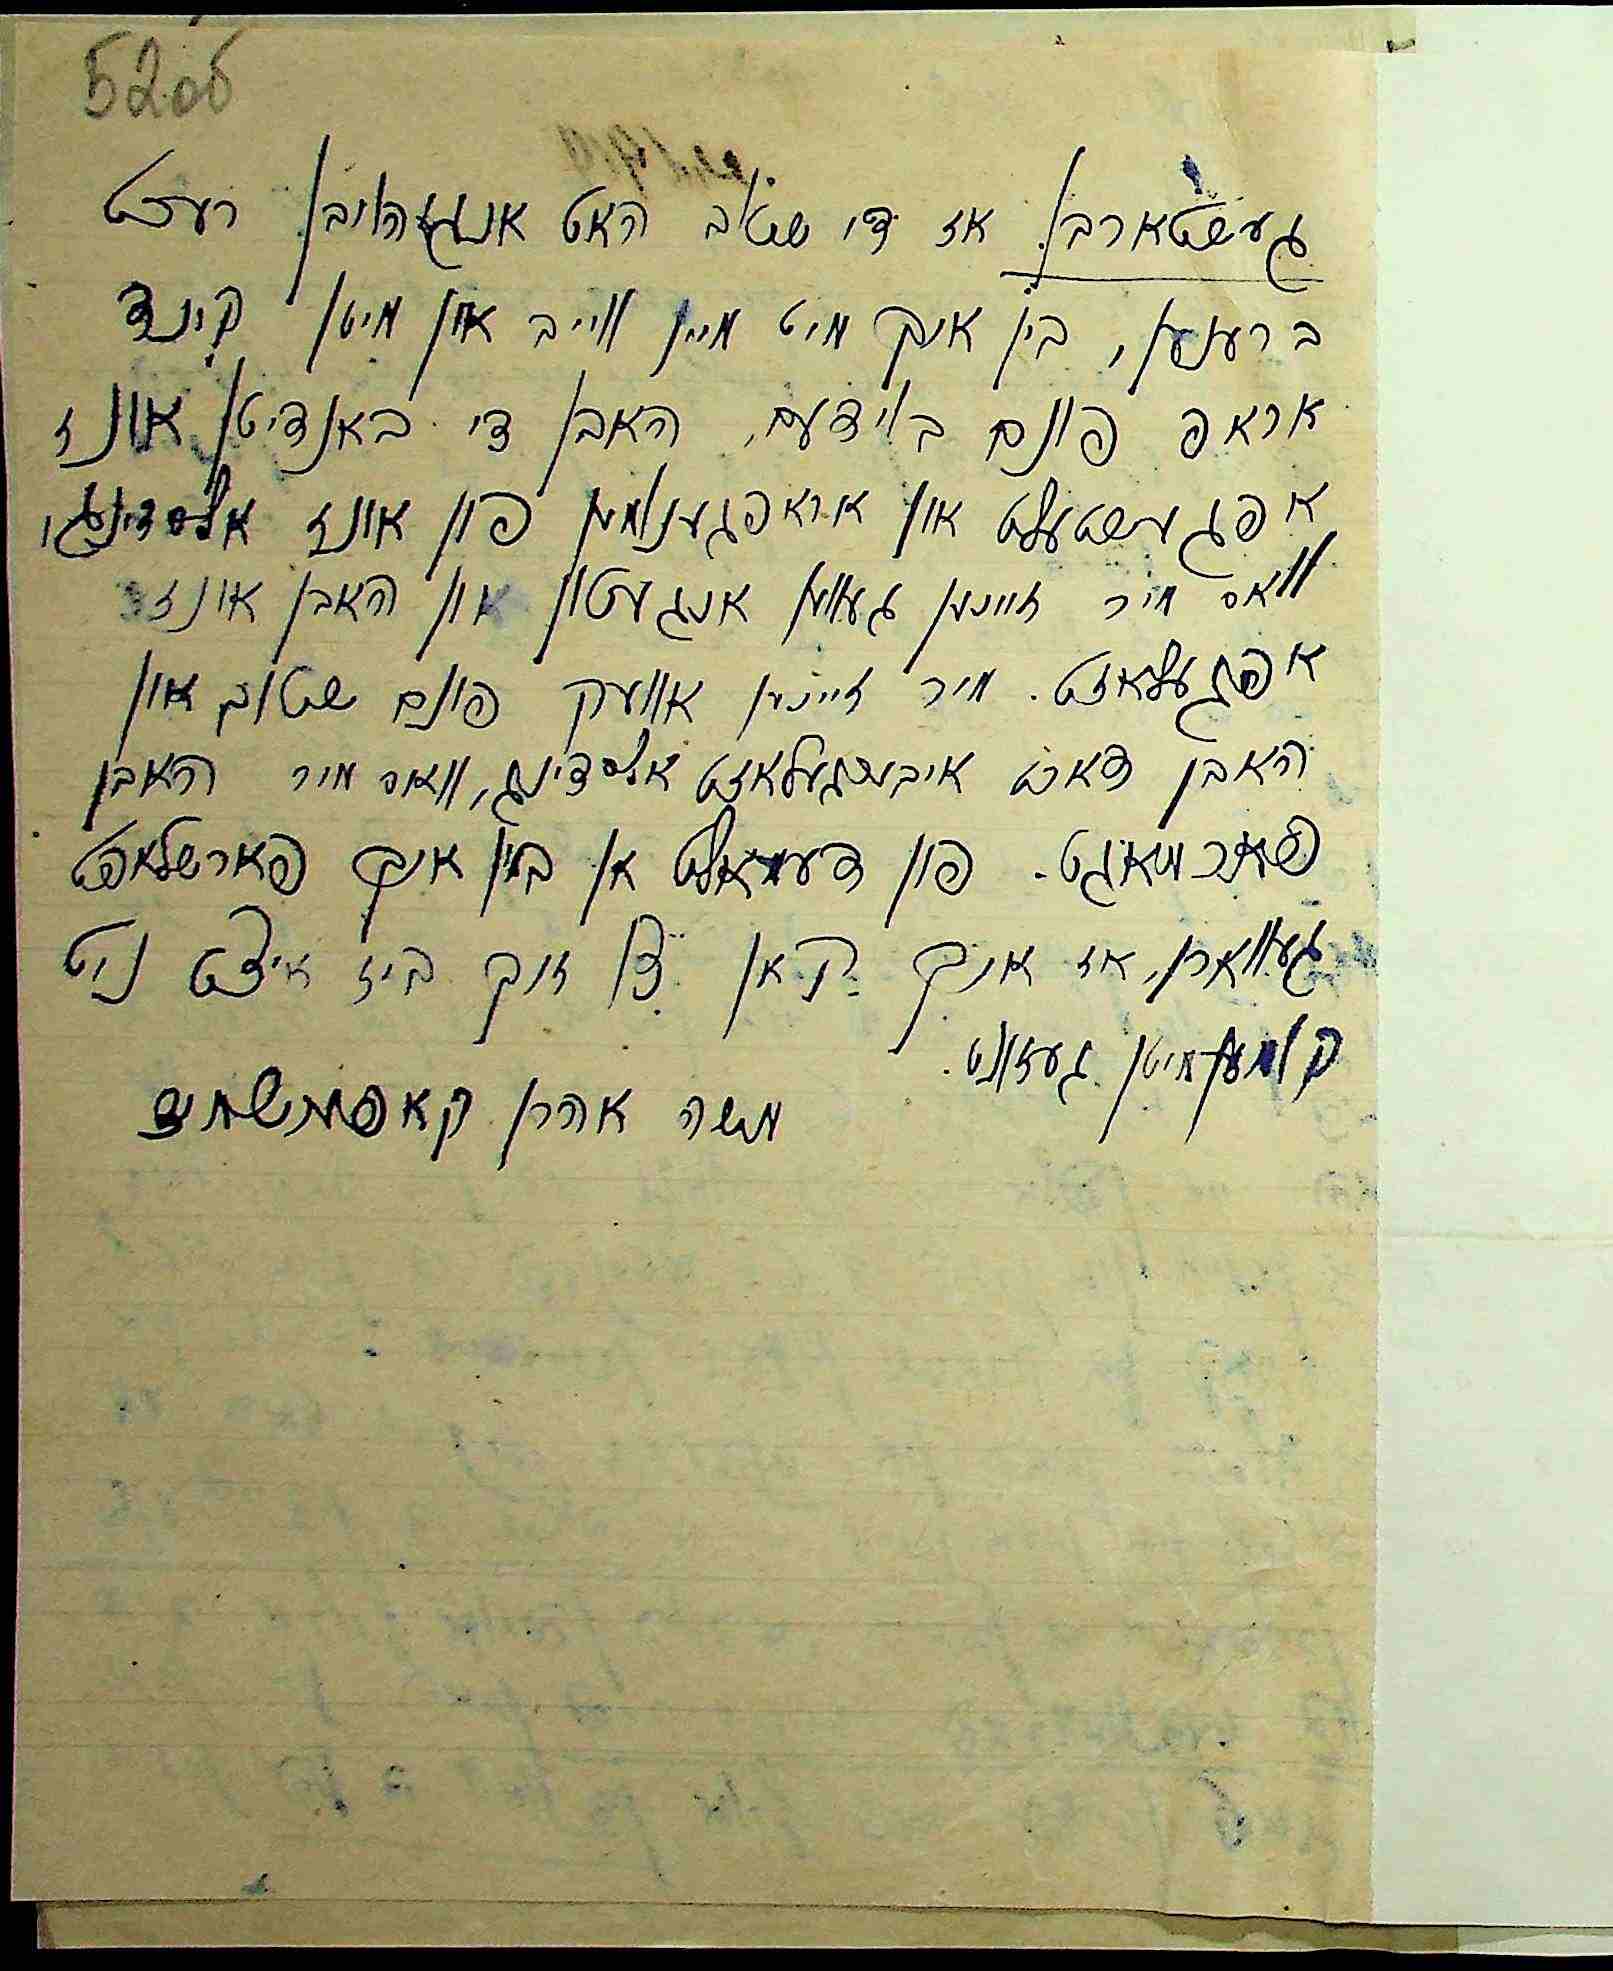 52об
געשטארבן. אז די שטוב האט אנגעהויבן רעכט
ברענען, בין איך מיט מיין ווייב און מיטן קינד
אראפ פונם בוידעם, האבן די באנדיטן אונז
אפגעשטעלט און אראפגענומען פון אונז אלסדינג,
וואס מיר זיינען געווען אנגעטון און האבן אונז
אפגעלאזט. מיר זיינען אוועק פונם שטוב און
האבן דארט איבערגעלאזט אלסדינג, וואס מיר האבן
פארמאגט. פון דעמאלט אן בין איך פארשלאפט
געווארן, אז איך קאן צו זיך ביז איצט ניט
קומען מיטן געזונט.
משה אהרן קאפערשמיד